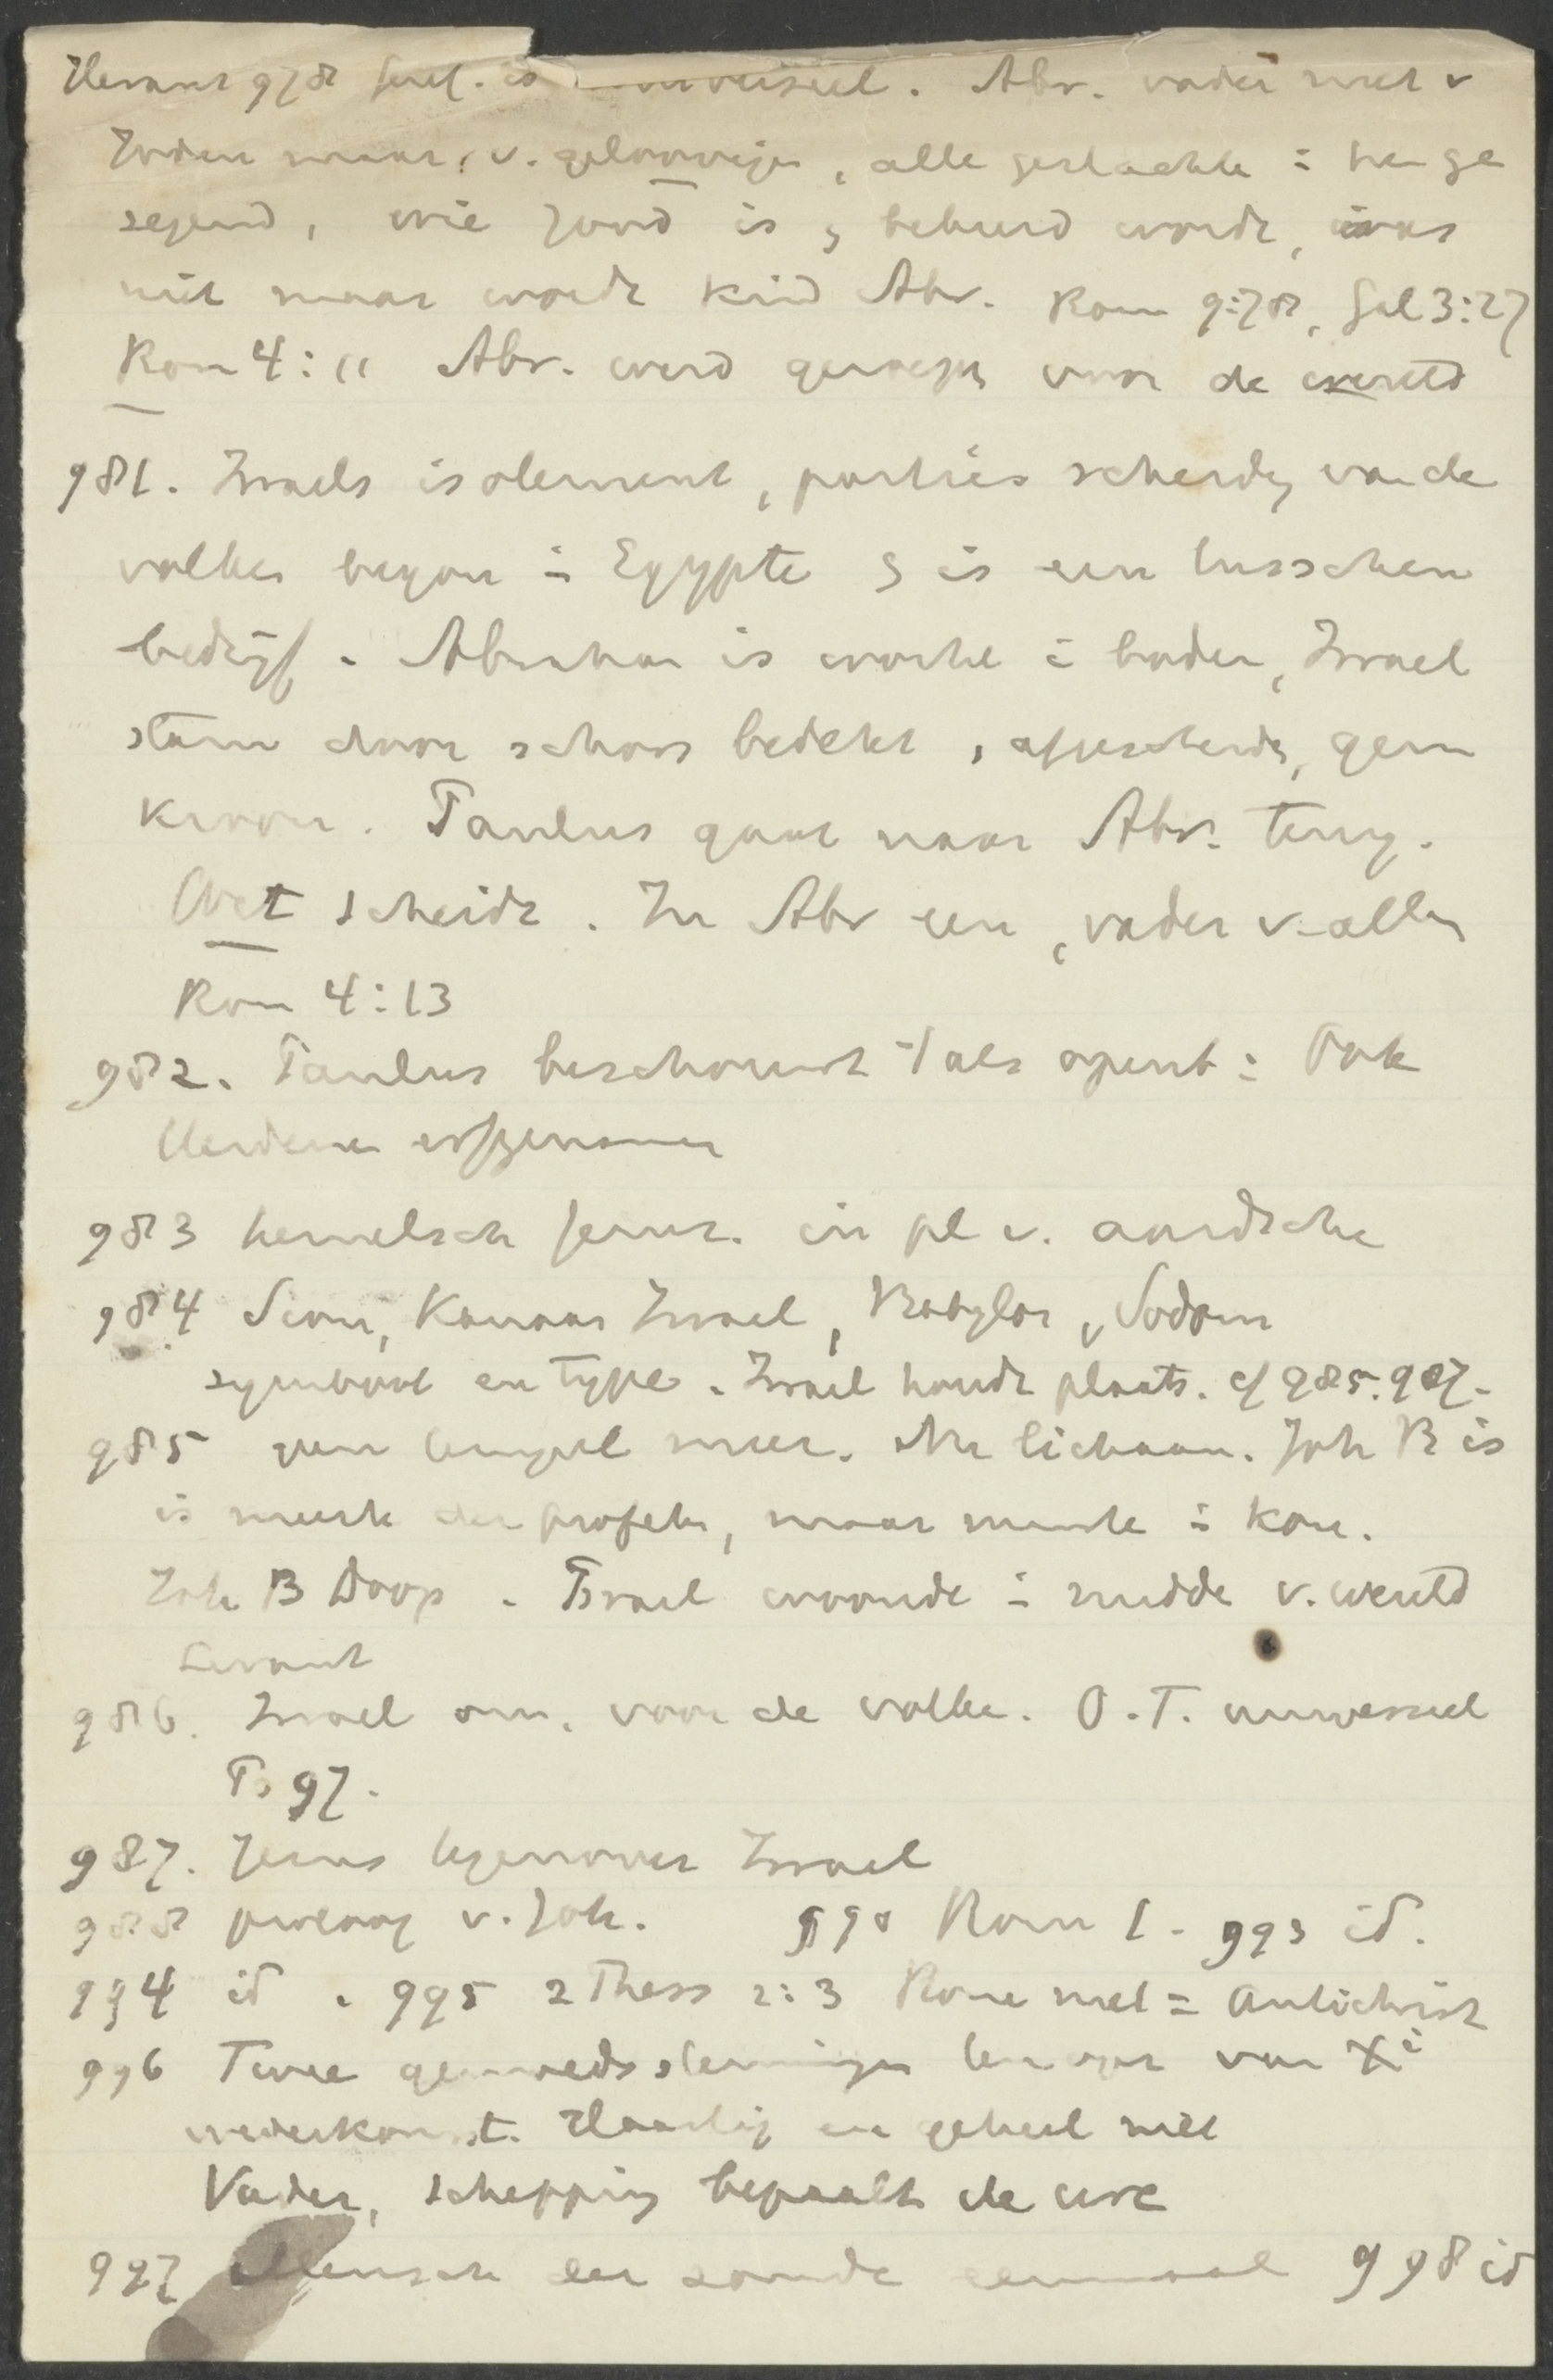 978 is universeel. Abr. vader niet v
Joden maar, v. geloovigen, alle geslachten in hem ge
zegend, wie Jood is & bekeerd wordt, was
niet maar wordt kind Abr. Rom 9:78, Gal 3:27
Rom 4:11 Abr. werd geroepen voor de wereld
981. Israels isolement, parties scheidg van de
volken begon in Egypte & is een tusschen
bedrijf. Abraham is wortel in bodem, Israel
stam door schors bedekt, afgescheidn, geen
kroon. Paulus gaat naar Abr. terug.
Wet scheidt. In Abr een, vader v. allen
Rom 4:13
982. Paulus beschouwt als opent: Ook
Heidenen erfgenamen
983 hemelsch Jeruz. in pl v. aardsche
984 Sion, Kanaan Israel, Babylon, Sodom
symbool en type. Israel houdt plaats. cf 985. 987.
985 geen tempel meer. Nu lichaam. Joh B is
is meeste der profeten, maar minste in kon.
Joh B Doop. Israel woonde in midde v. wereld
Levant
986. Israel voor de volken. O.T. universeel
Ps 97.
987. Jezus tegenover Israel
988 proloog v. Joh. 990 Rom 1. 993 id.
994 id. 995 2 Thess 2:3 Rome niet = Antichrist
996 Twee gemoedsstemmingen ten opz van Xi
wederkomst. Haastig en geheel niet
Vader, schepping bepaalt de ure
997 Mensch der zonde eenmaal 998 id